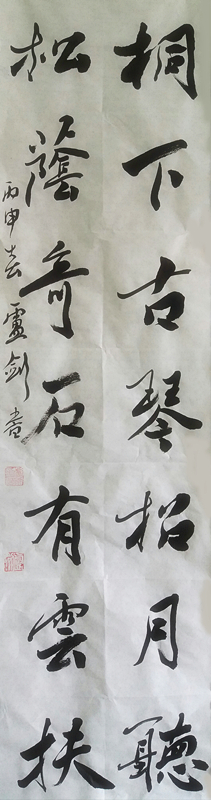 桐下古琴招月聽
松蔭奇石有雲扶
丙申春盧劍書